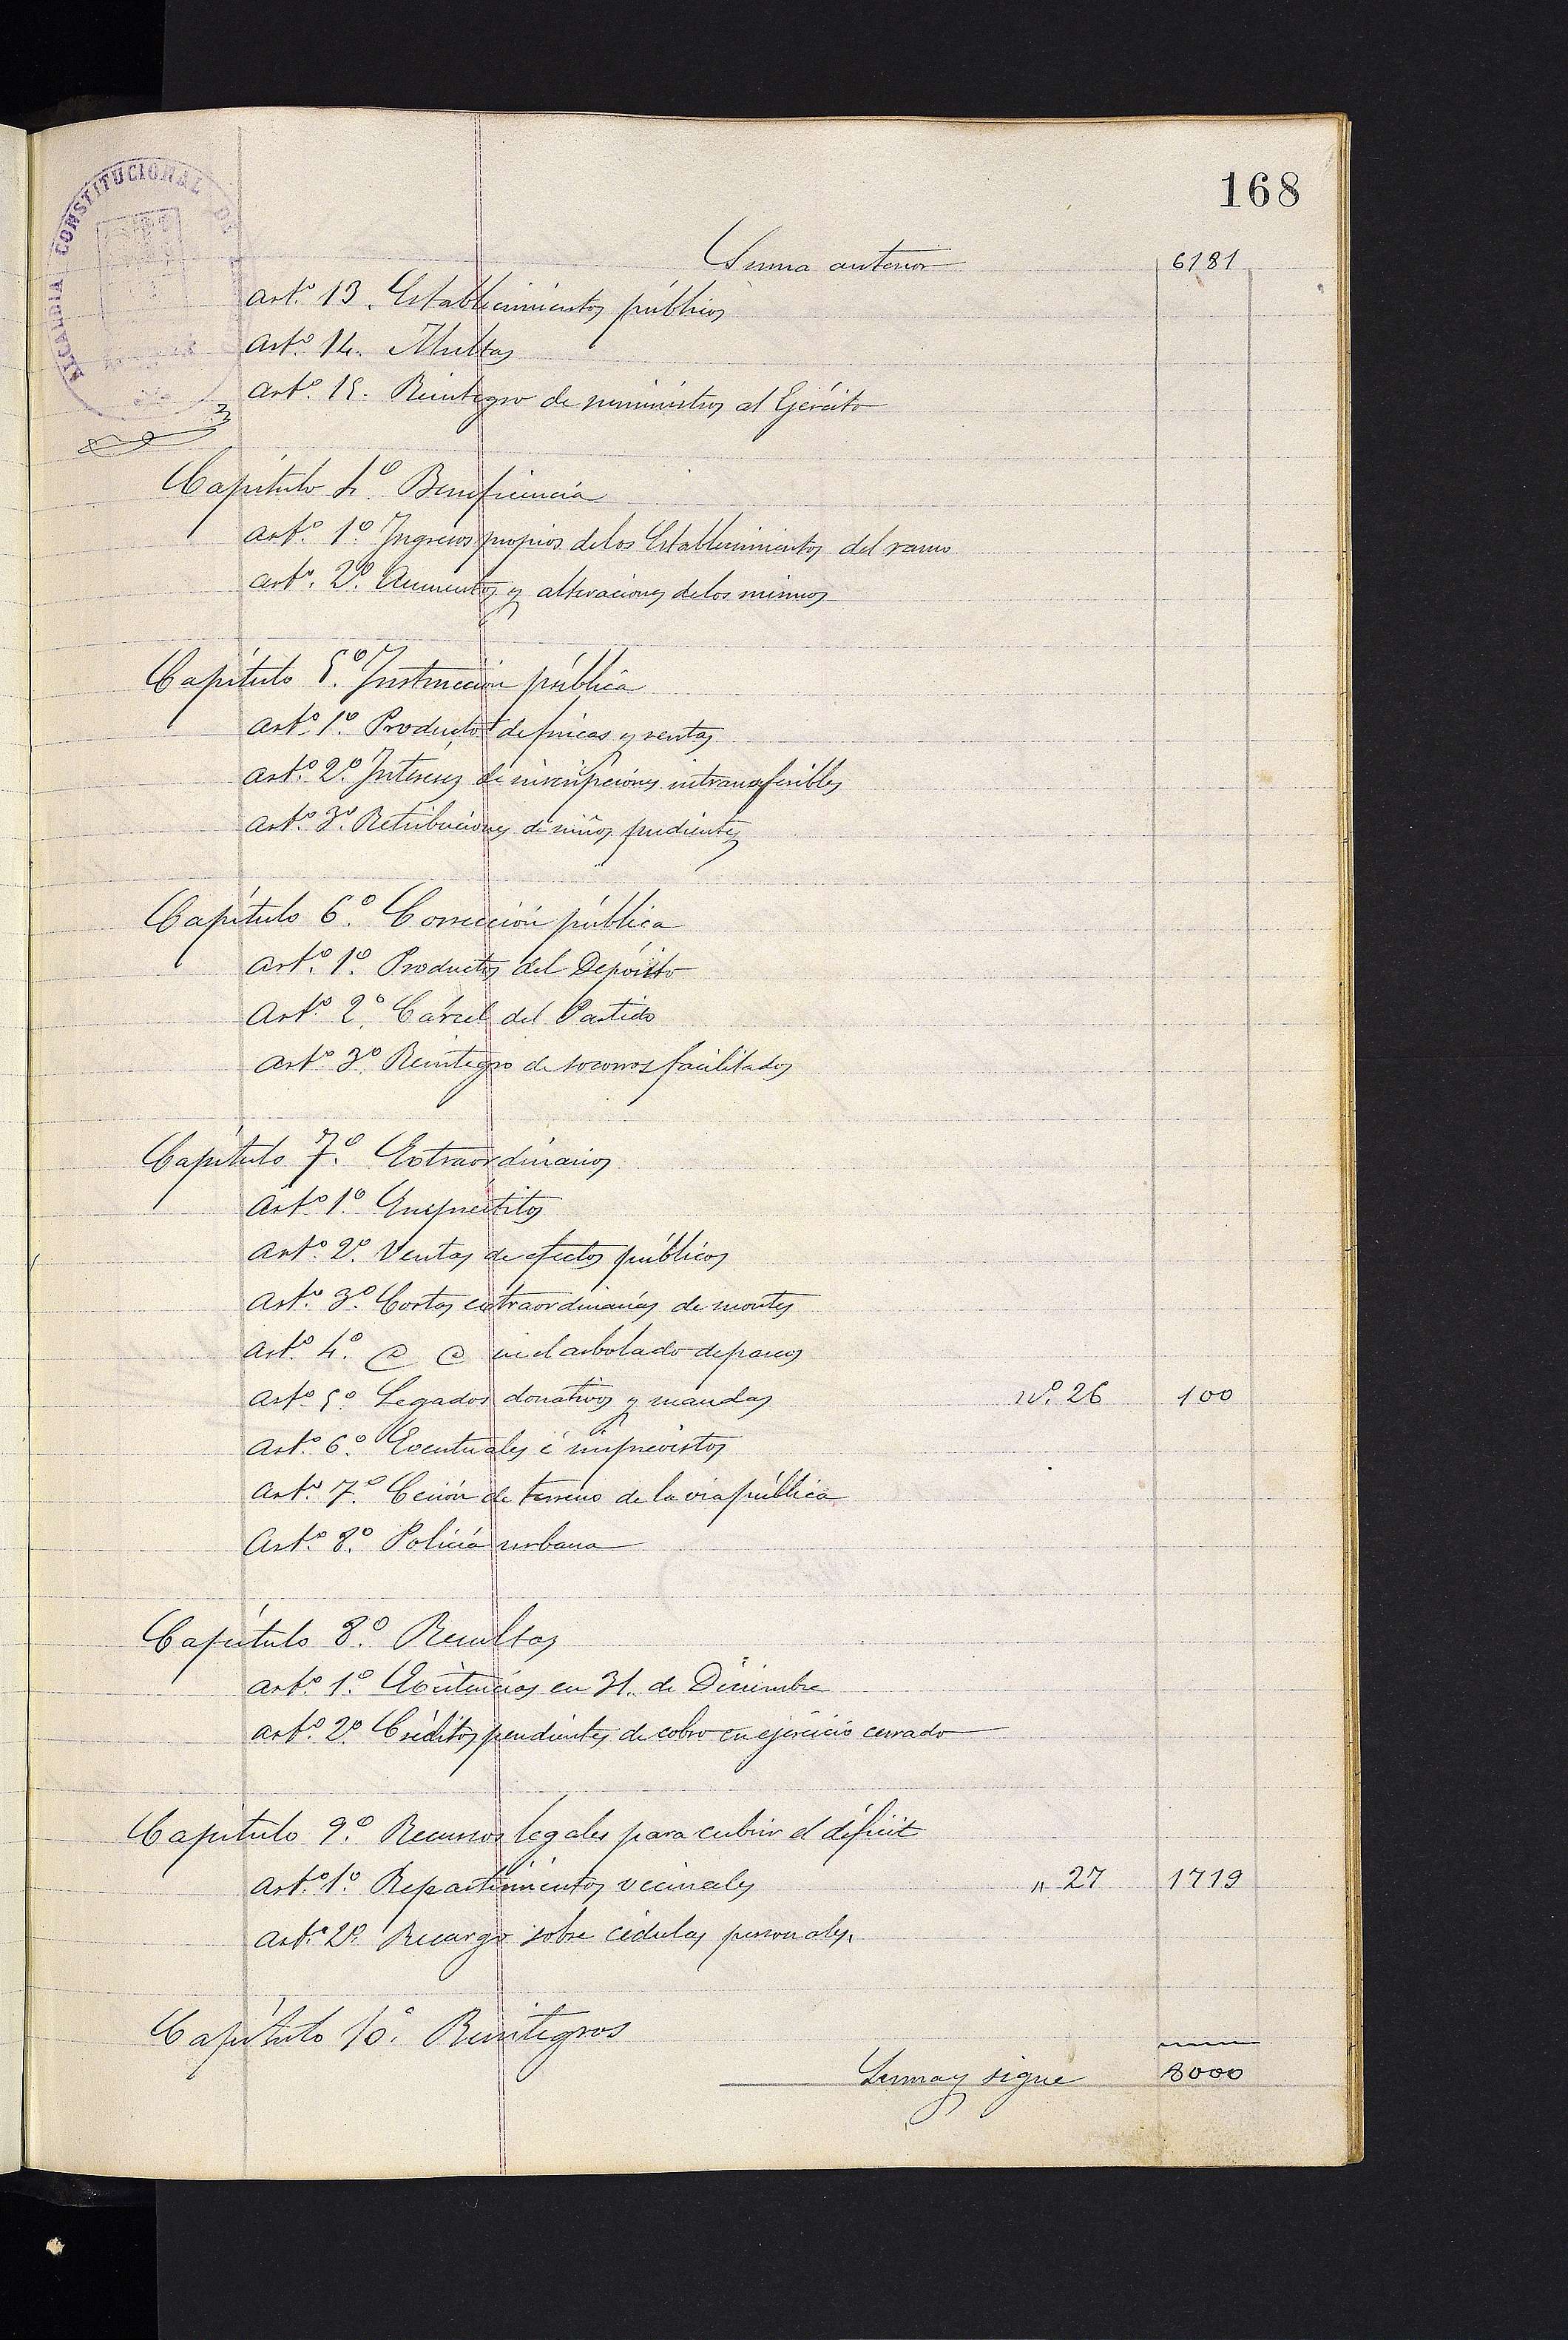 168
ALCALDÍA CONSTITUCIONAL DE
Suma anterior 6181
Artº 13. Establecimientos públicos
Artº 14. Multas
Artº 15. Reintegro de suministros al Ejército
Capítulo 4º Beneficencia
Artº 1º Ingresos propios de los Establecimientos del ramo
Artº 2º Aumentos y alteraciones de los mismos
Capítulo 5º Instrucción pública
Artº 1º Productos de fincas y rentas
Artº 2º Intereses de inscripciones intransferibles
Artº 3º Retribuciones de niños pudientes
Capítulo 6º Corrección pública
Artº 1º Productos del Depósito
Artº 2º Cárcel del Partido
Artº 3º Reintegro de socorros facilitados
Capítulo 7º Extraordinarios
Artº 1º Empréstitos
Artº 2º Ventas de efectos públicos
Artº 3º Cortas extraordinarias de montes
Artº 4º @ @ en el arbolado de paseos
Artº 5º Legados donativos y mandas Nº 26 100
Artº 6º Eventuales é imprevistos
Artº 7º Cesión de terreno de la via pública
Artº 8º Policía urbana
Capítulo 8º Resultas
Artº 1º Existencias en 31 de Diciembre
Artº 2º Créditos pendientes de cobro en ejercicio cerrado
Capítulo 9º Recursos legales para cubrir el déficit
Artº 1º Repartimientos vecinales " 27 1719
Artº 2º Recargo sobre cédulas personales.
Capítulo 10º Reintegros
Suma y sigue 8000